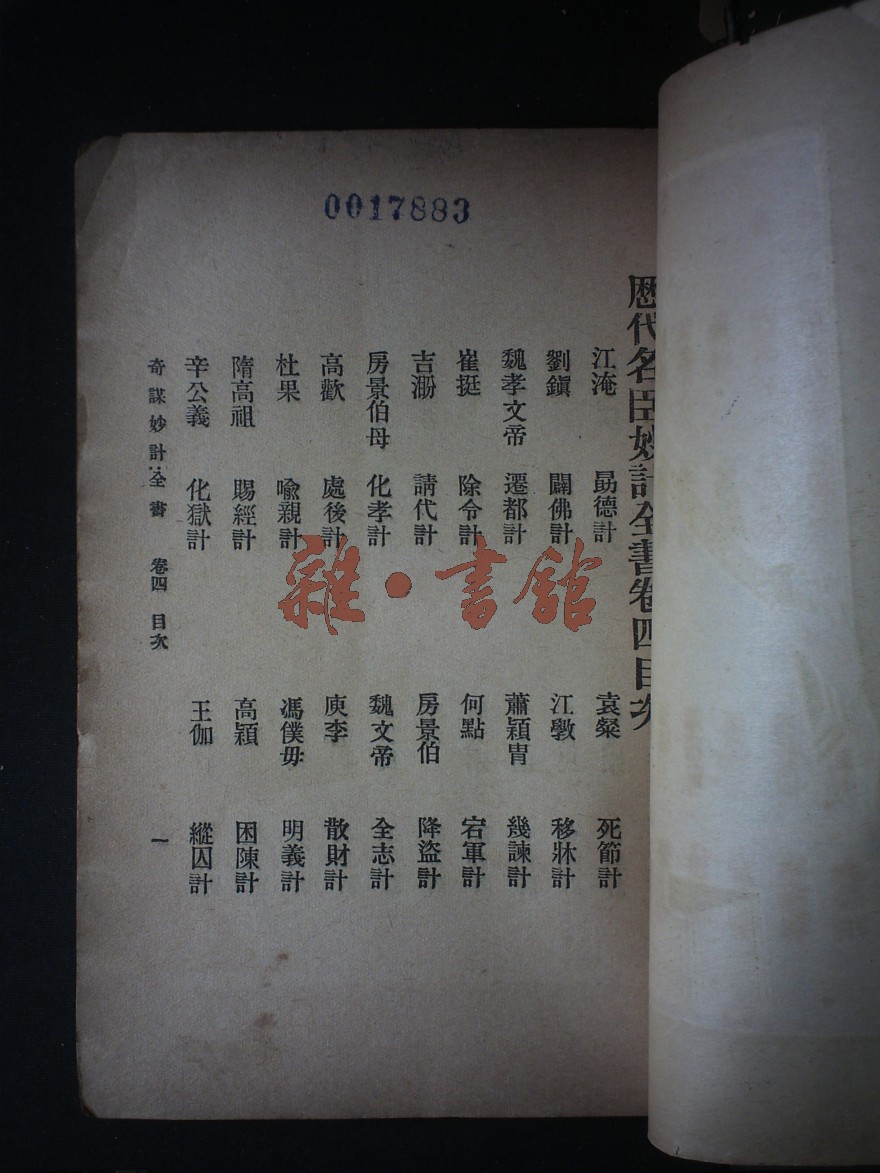 0017883
歷代名臣妙計全書卷四目次
江淹 勗德計 袁粲 死節計
劉鎭 闢佛計 江斆 移牀計
魏孝文帝 遷都計 蕭穎冑 幾諫計
崔挺 除令計 何點 宕軍計
吉翂 請代計 房景伯 降盜計
房景伯母 化孝計 魏文帝 全志計
高歡 處後計 庾李 散財計
杜果 喩親計 馮僕毋 明義計
隋高祖 賜經計 高穎 困陳計
辛公義 化獄計 王伽 縱囚計
奇謀妙計全書 卷四 目次 一
雜·書館